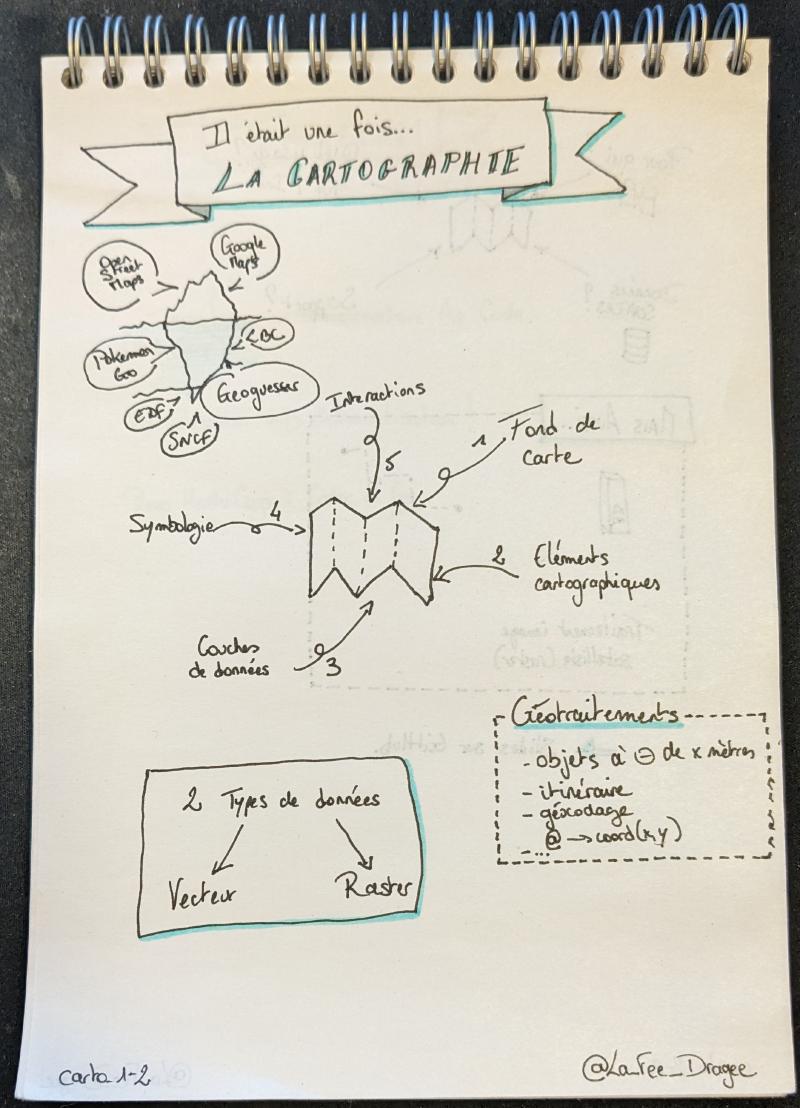 Il était une fois...
LA CARTOGRAPHIE
Open
Street
Maps
Google
Maps
Pokemon
Goo
LBC
Geoguesser
EDF
SNCF
Interactions
5
1 Fond de
carte
Symbologie
4
2 Eléments
cartographiques
Couches
de données
3
Géotraitements
- objets à ⊖ de x mètres
- itinéraire
- géocodage
@ → coord(x,y)
- ...
2 Types de données
Vecteur
Raster
carto 1-2
@La_Fee_Dragee